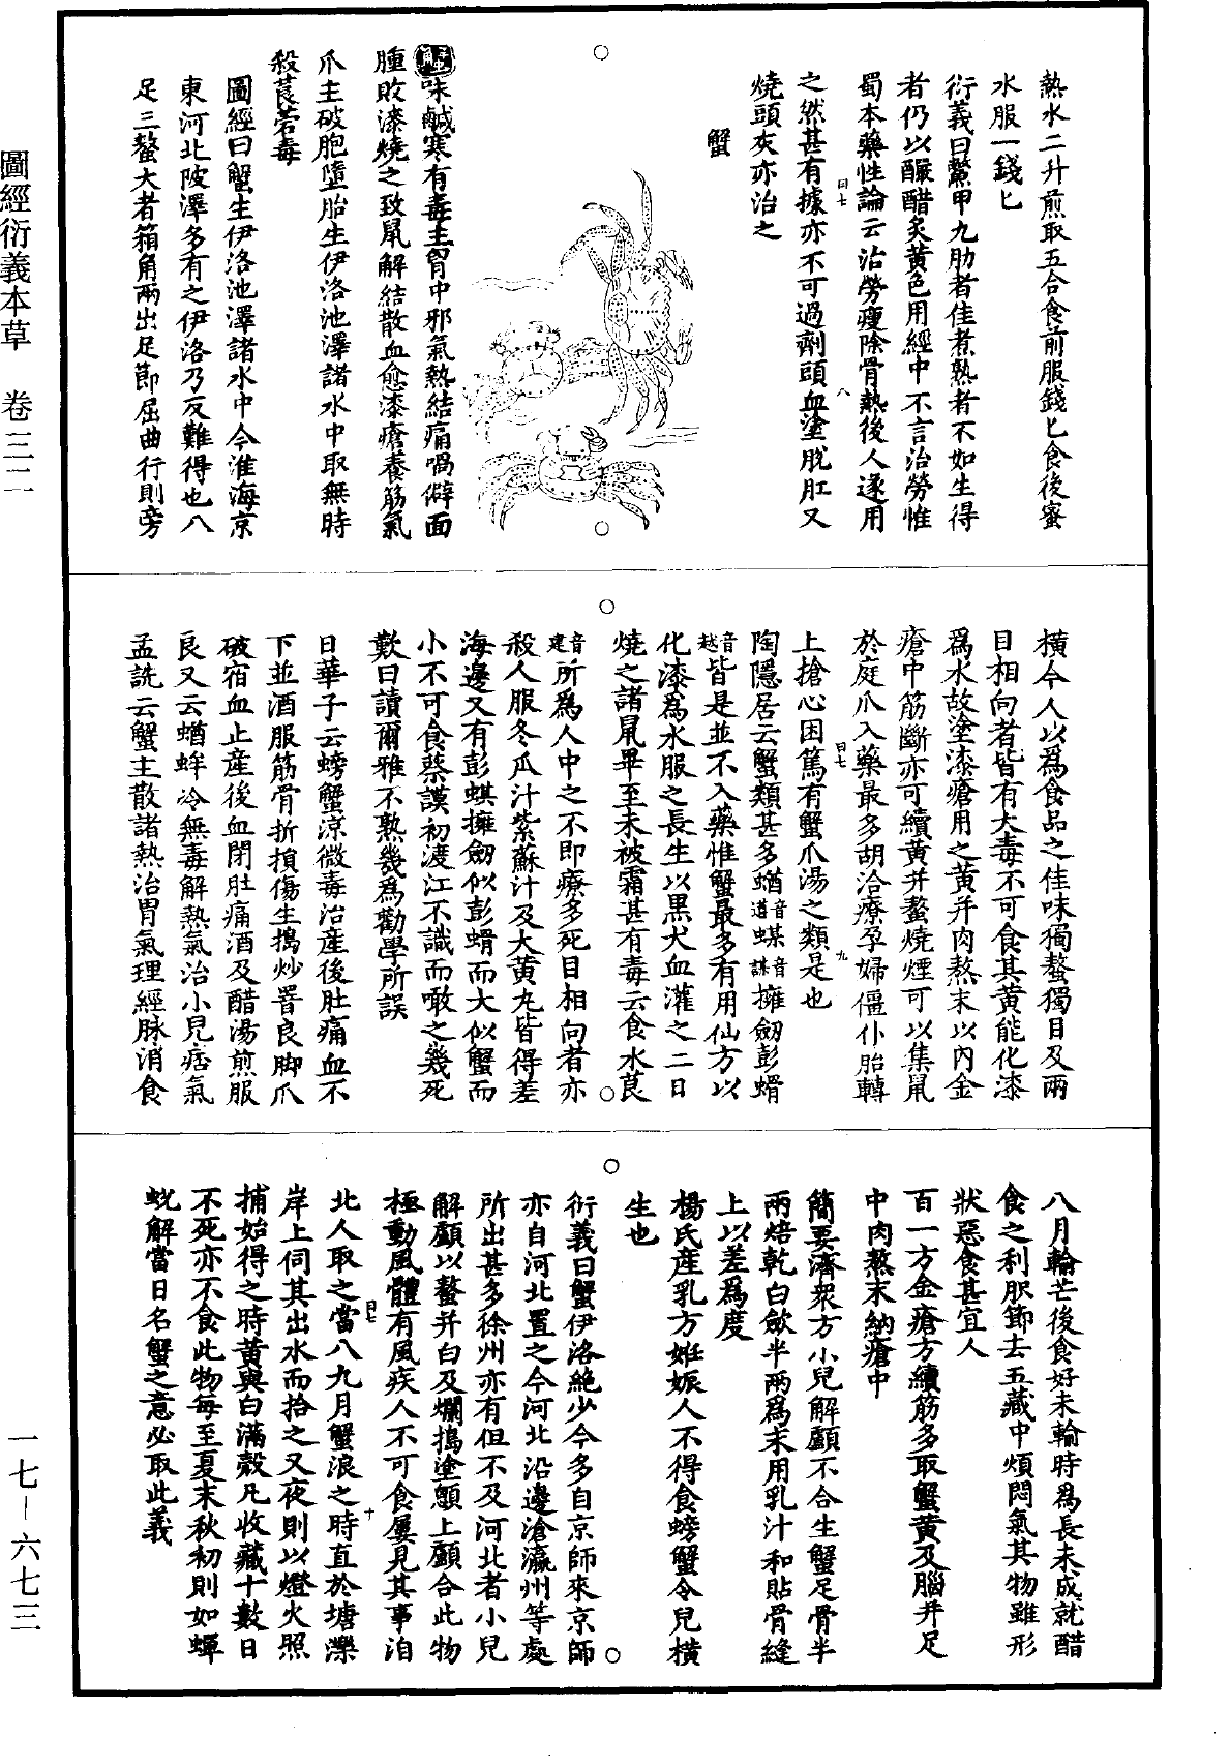 熱水二升煎取五合食前服錢匕食後蜜
水服一錢匕
衍義曰鱉甲九肋者佳煮熟者不如生得
者仍以釅醋炙黃色用經中不言治勞惟
蜀本藥性論云治勞瘦除骨熱後人遂用
之然甚有據亦不可過劑頭血塗脫肛又
燒頭灰亦治之
蟹
味鹹寒有毒主胷中邪氣熱結痛喎僻面
腫敗漆燒之致鼠解結散血愈漆瘡養筋氣
爪主破胞墮胎生伊洛池澤諸水中取無時
殺莨菪毒
圖經曰蟹生伊洛池澤諸水中今淮海京
東河北陂澤多有之伊洛乃反難得也八
足三螯大者箱角兩出足節屈曲行則旁
橫今人以為食品之佳味獨螯獨目及兩
目相向者皆有大毒不可食其黃能化漆
為水故塗漆瘡用之黃并肉熬末以內金
瘡中筋斷亦可續黃并螯燒煙可以集鼠
於庭爪入藥最多胡洽療孕婦僵仆胎轉
上搶心困篤有蟹爪湯之類是也
陶隱居云蟹類甚多蝤音遒蛑音謀擁劒彭蜎
音越皆是並不入藥惟蟹最多有用仙方以
化漆為水服之長生以黑犬血灌之二日
燒之諸鼠畢至未被霜甚有毒云食水莨
音建所為人中之不即療多死目相向者亦
殺人服冬瓜汁紫蘇汁及大黃丸皆得差
海邊又有彭蜞擁劒似彭蜎而大似蟹而
小不可食蔡謨初渡江不識而噉之幾死
歎曰讀爾雅不熟幾為勸學所誤
日華子云螃蟹涼微毒治產後肚痛血不
下並酒服筋骨折損傷生搗炒罯良脚爪
破宿血止產後血閉肚痛酒及醋湯煎服
良又云蝤蛑冷無毒解熱氣治小兒痞氣
孟詵云蟹主散諸熱治胃氣理經脉消食
八月輸芒後食好未輸時為長未成就醋
食之利肢節去五藏中煩悶氣其物雖形
狀惡食甚宜人
百一方金瘡方續筋多取蟹黃及腦并足
中肉熬末納瘡中
簡要濟衆方小兒解顱不合生蟹足骨半
兩焙乾白斂半兩為末用乳汁和貼骨縫
上以差為度
楊氏產乳方妊娠人不得食螃蟹令兒橫
生也
衍義曰蟹伊洛絕少今多自京師來京師
亦自河北置之今河北沿邊滄瀛州等處
所出甚多徐州亦有但不及河北者小兒
解顱以螯并白及爛搗塗顖上顱合此物
極動風體有風疾人不可食屢見其事洎
北人取之當八九月蟹浪之時直於塘濼
岸上伺其出水而拾之又夜則以燈火照
捕始得之時黃與白滿殼凡收藏十數日
不死亦不食此物每至夏末秋初則如蟬
蛻解當日名蟹之意必取此義
圖經衍義本草 卷三二
一七—六七三